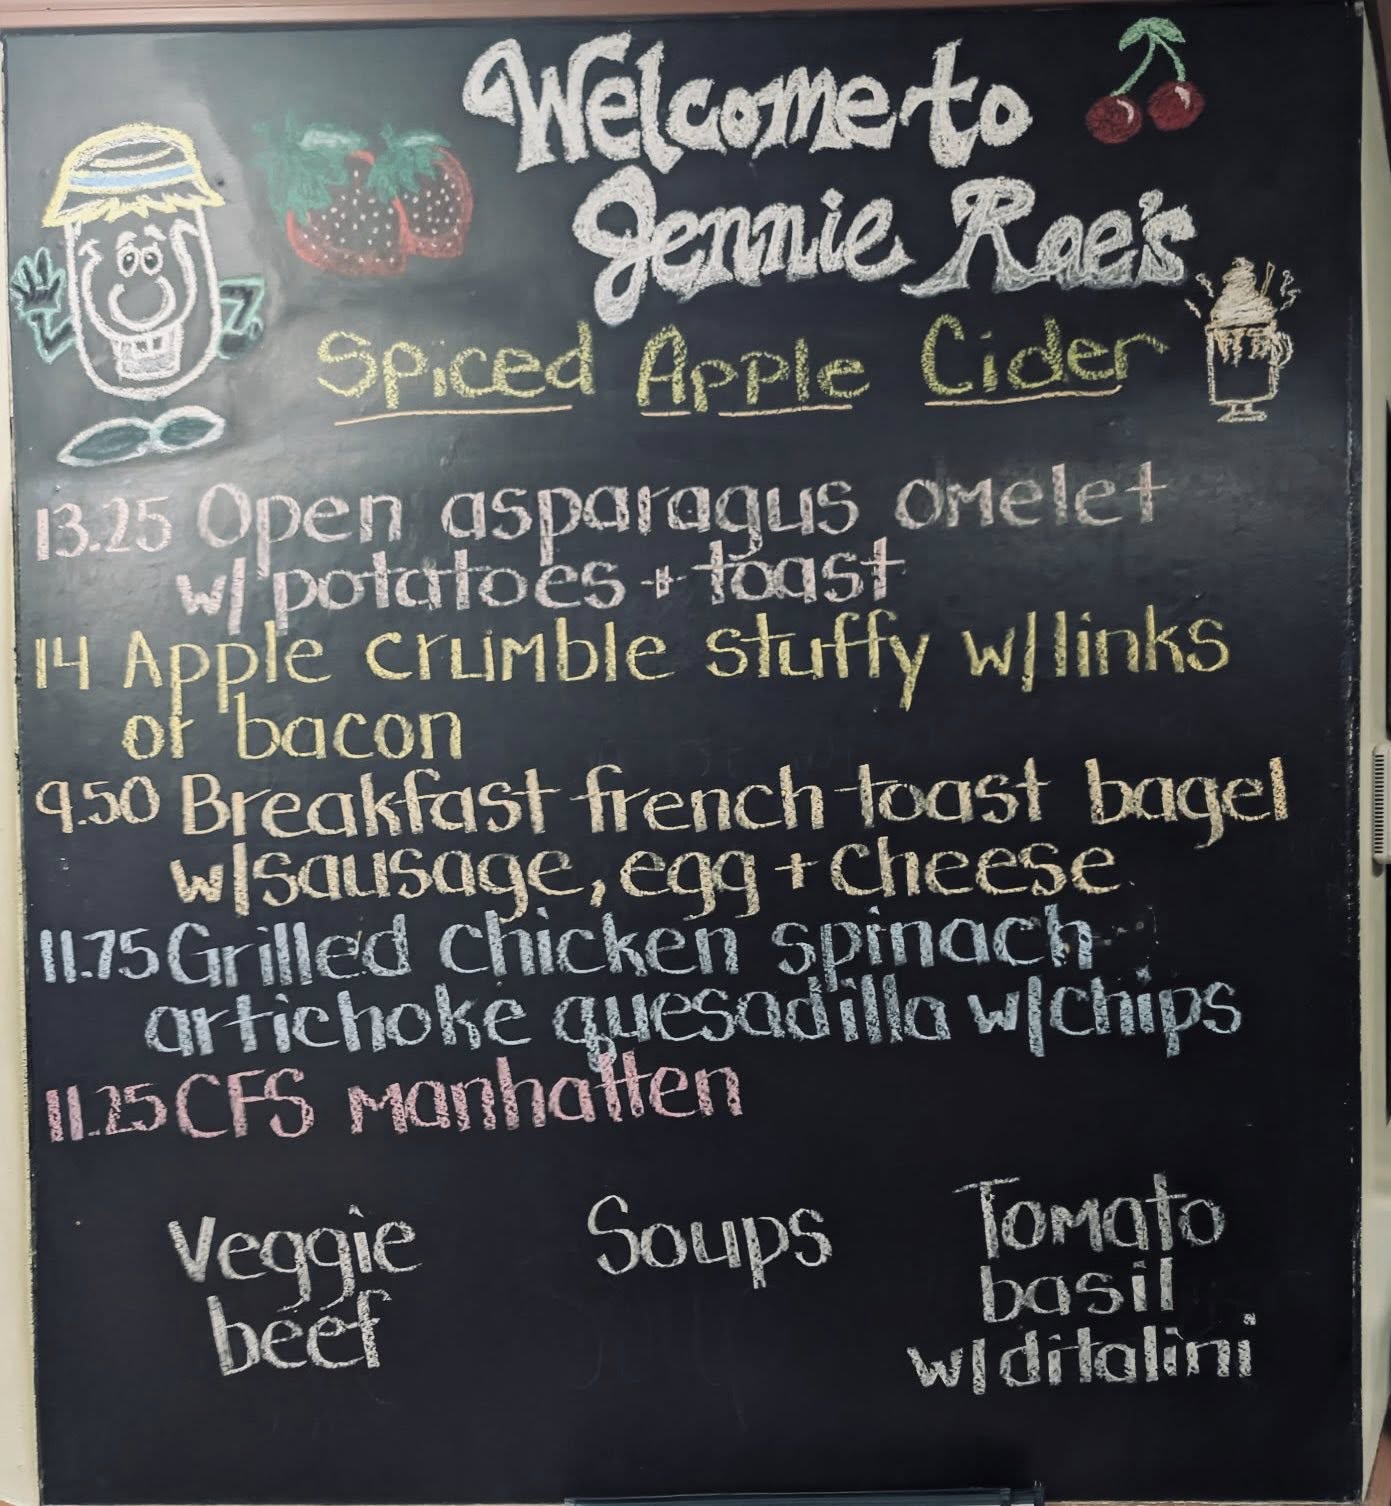 Welcome to
Jennie Rae's
Spiced Apple Cider
13.25 Open asparagus omelet
w/ potatoes + toast
14 Apple crumble stuffy w/links
or bacon
9.50 Breakfast french toast bagel
w/sausage, egg + cheese
11.75 Grilled chicken spinach
artichoke quesadilla w/chips
11.25 CFS Manhatten
Veggie
beef
Soups
Tomato
basil
w/ditalini